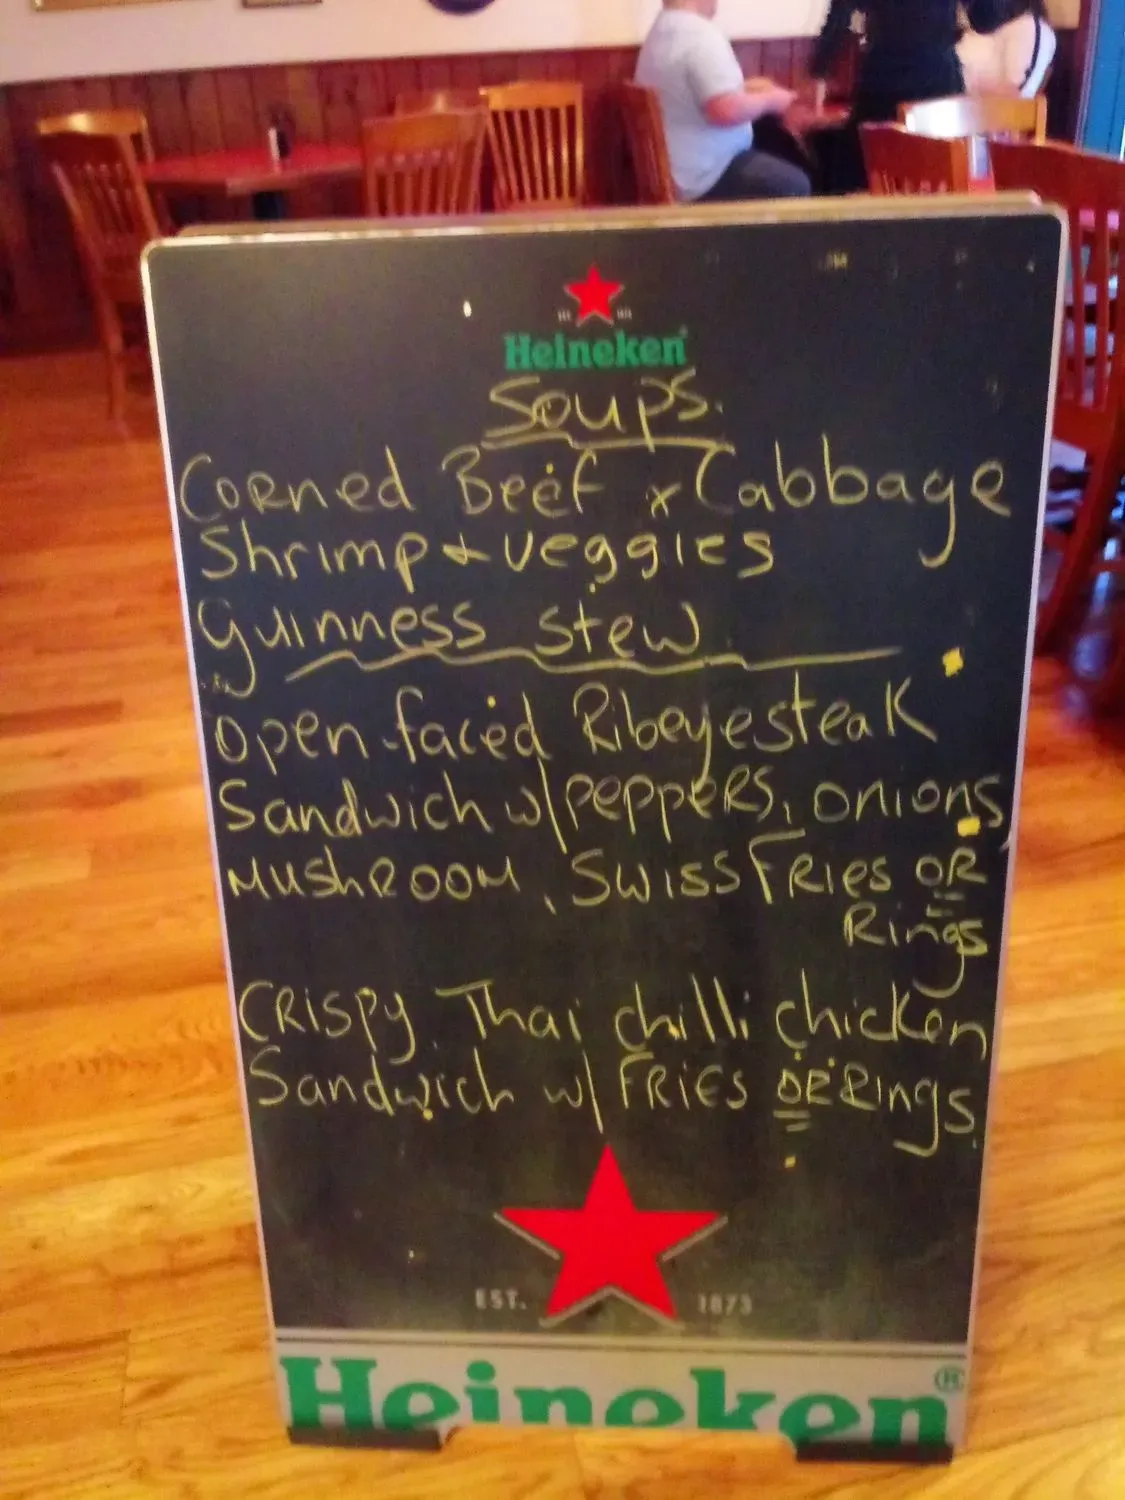 Heineken
Soups.
Corned Beef & Cabbage
Shrimp & veggies
Guinness stew
Open-faced Ribeyesteak
Sandwich w/ peppers, onions,
Mushroom, Swiss Fries OR
Rings
Crispy Thai chilli chicken
Sandwich w/ Fries OR Rings.
EST. 1873
Heineken®